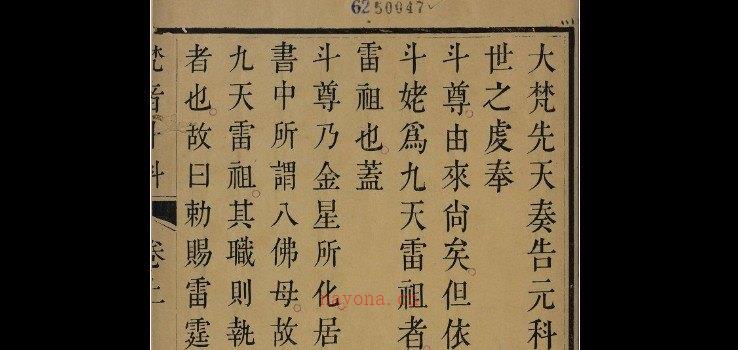 6250047
大梵先天奏告元科
世之虔奉
斗尊。由來尙矣。但依
斗姥爲九天雷祖者。
雷祖也。蓋
斗尊乃金星所化。居
書中所謂八佛母。故
九天雷祖。其職則執
者也。故曰勅賜雷霆
梵音斗科
卷上